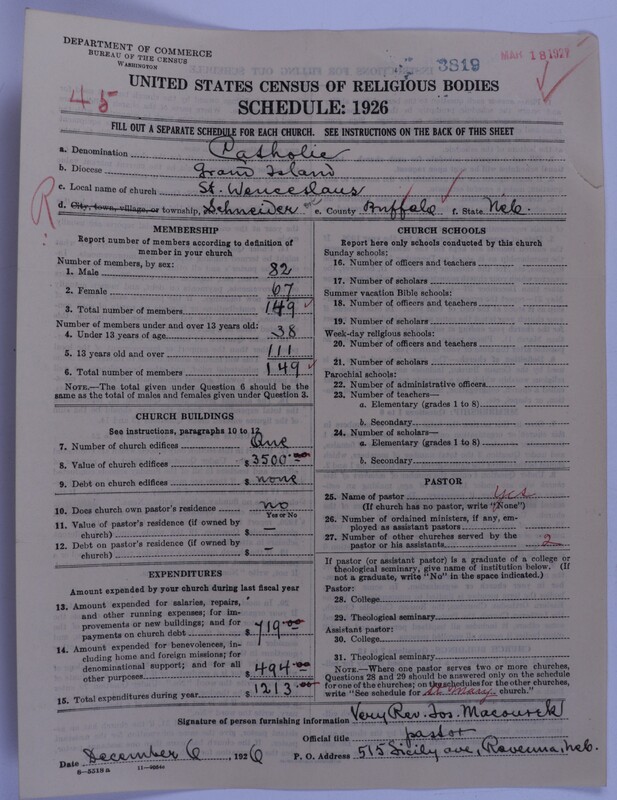 DEPARTMENT OF COMMERCE
BUREAU OF THE CENSUS
WASHINGTON
3819
MAR 18 1927
45
UNITED STATES CENSUS OF RELIGIOUS BODIES
SCHEDULE: 1926
FILL OUT A SEPARATE SCHEDULE FOR EACH CHURCH. SEE INSTRUCTIONS ON THE BACK OF THIS SHEET
a. Denomination Catholic
b. Diocese Grand Island
c. Local name of church St. Wenceslaus
R
d. City, town, village, or township, Schneider e. County Buffalo f. State Neb.
MEMBERSHIP
Report number of members according to definition of
member in your church
Number of members, by sex:
1. Male 82
2. Female 67
3. Total number of members 149
Number of members under and over 13 years old:
4. Under 13 years of age 38
5. 13 years old and over 111
6. Total number of members 149
NOTE.—The total given under Question 6 should be
same as the total of males and females given under Question 3.
CHURCH BUILDINGS
See instructions, paragraphs 10 to 12
7. Number of church edifices One
8. Value of church edifices $3500.00
9. Debt on church edifices $ none
10. Does church own pastor's residence no
Yes or No
11. Value of pastor's residence (if owned by
church) $ —
12. Debt on pastor's residence (if owned by
church) $ —
EXPENDITURES
Amount expended by your church during last fiscal year
13. Amount expended for salaries, repairs,
and other running expenses; for im-
provements or new buildings; and for
payments on church debt $719.00
14. Amount expended for benevolences, in-
cluding home and foreign missions; for
denominational support; and for all
other purposes $494.00
15. Total expenditures during year $1213.00
CHURCH SCHOOLS
Report here only schools conducted by this church
Sunday schools:
16. Number of officers and teachers
17. Number of scholars
Summer vacation Bible schools:
18. Number of officers and teachers
19. Number of scholars
Week-day religious schools:
20. Number of officers and teachers
21. Number of scholars
Parochial schools:
22. Number of administrative officers
23. Number of teachers—
a. Elementary (grades 1 to 8)
b. Secondary
24. Number of scholars—
a. Elementary (grades 1 to 8)
b. Secondary
PASTOR
25. Name of pastor yes
(If church has no pastor, write "None")
26. Number of ordained ministers, if any, em-
ployed as assistant pastors
27. Number of other churches served by the
pastor or his assistants 2
If pastor (or assistant pastor) is a graduate of a college or
theological seminary, give name of institution below. (If
not a graduate, write "No" in the space indicated.)
Pastor:
28. College
29. Theological seminary
Assistant pastor:
30. College
31. Theological seminary
NOTE.—Where one pastor serves two or more churches,
Questions 28 and 29 should be answered only on the schedule
for one of the churches; on the schedules for the other churches,
write "See schedule for St. Mary church."
Signature of person furnishing information Very Rev. Jos. Macourek
Official title pastor
Date December 6, 1926 P. O. Address 515 Sicily ave, Ravenna, Neb.
8—5319 a 11—9664